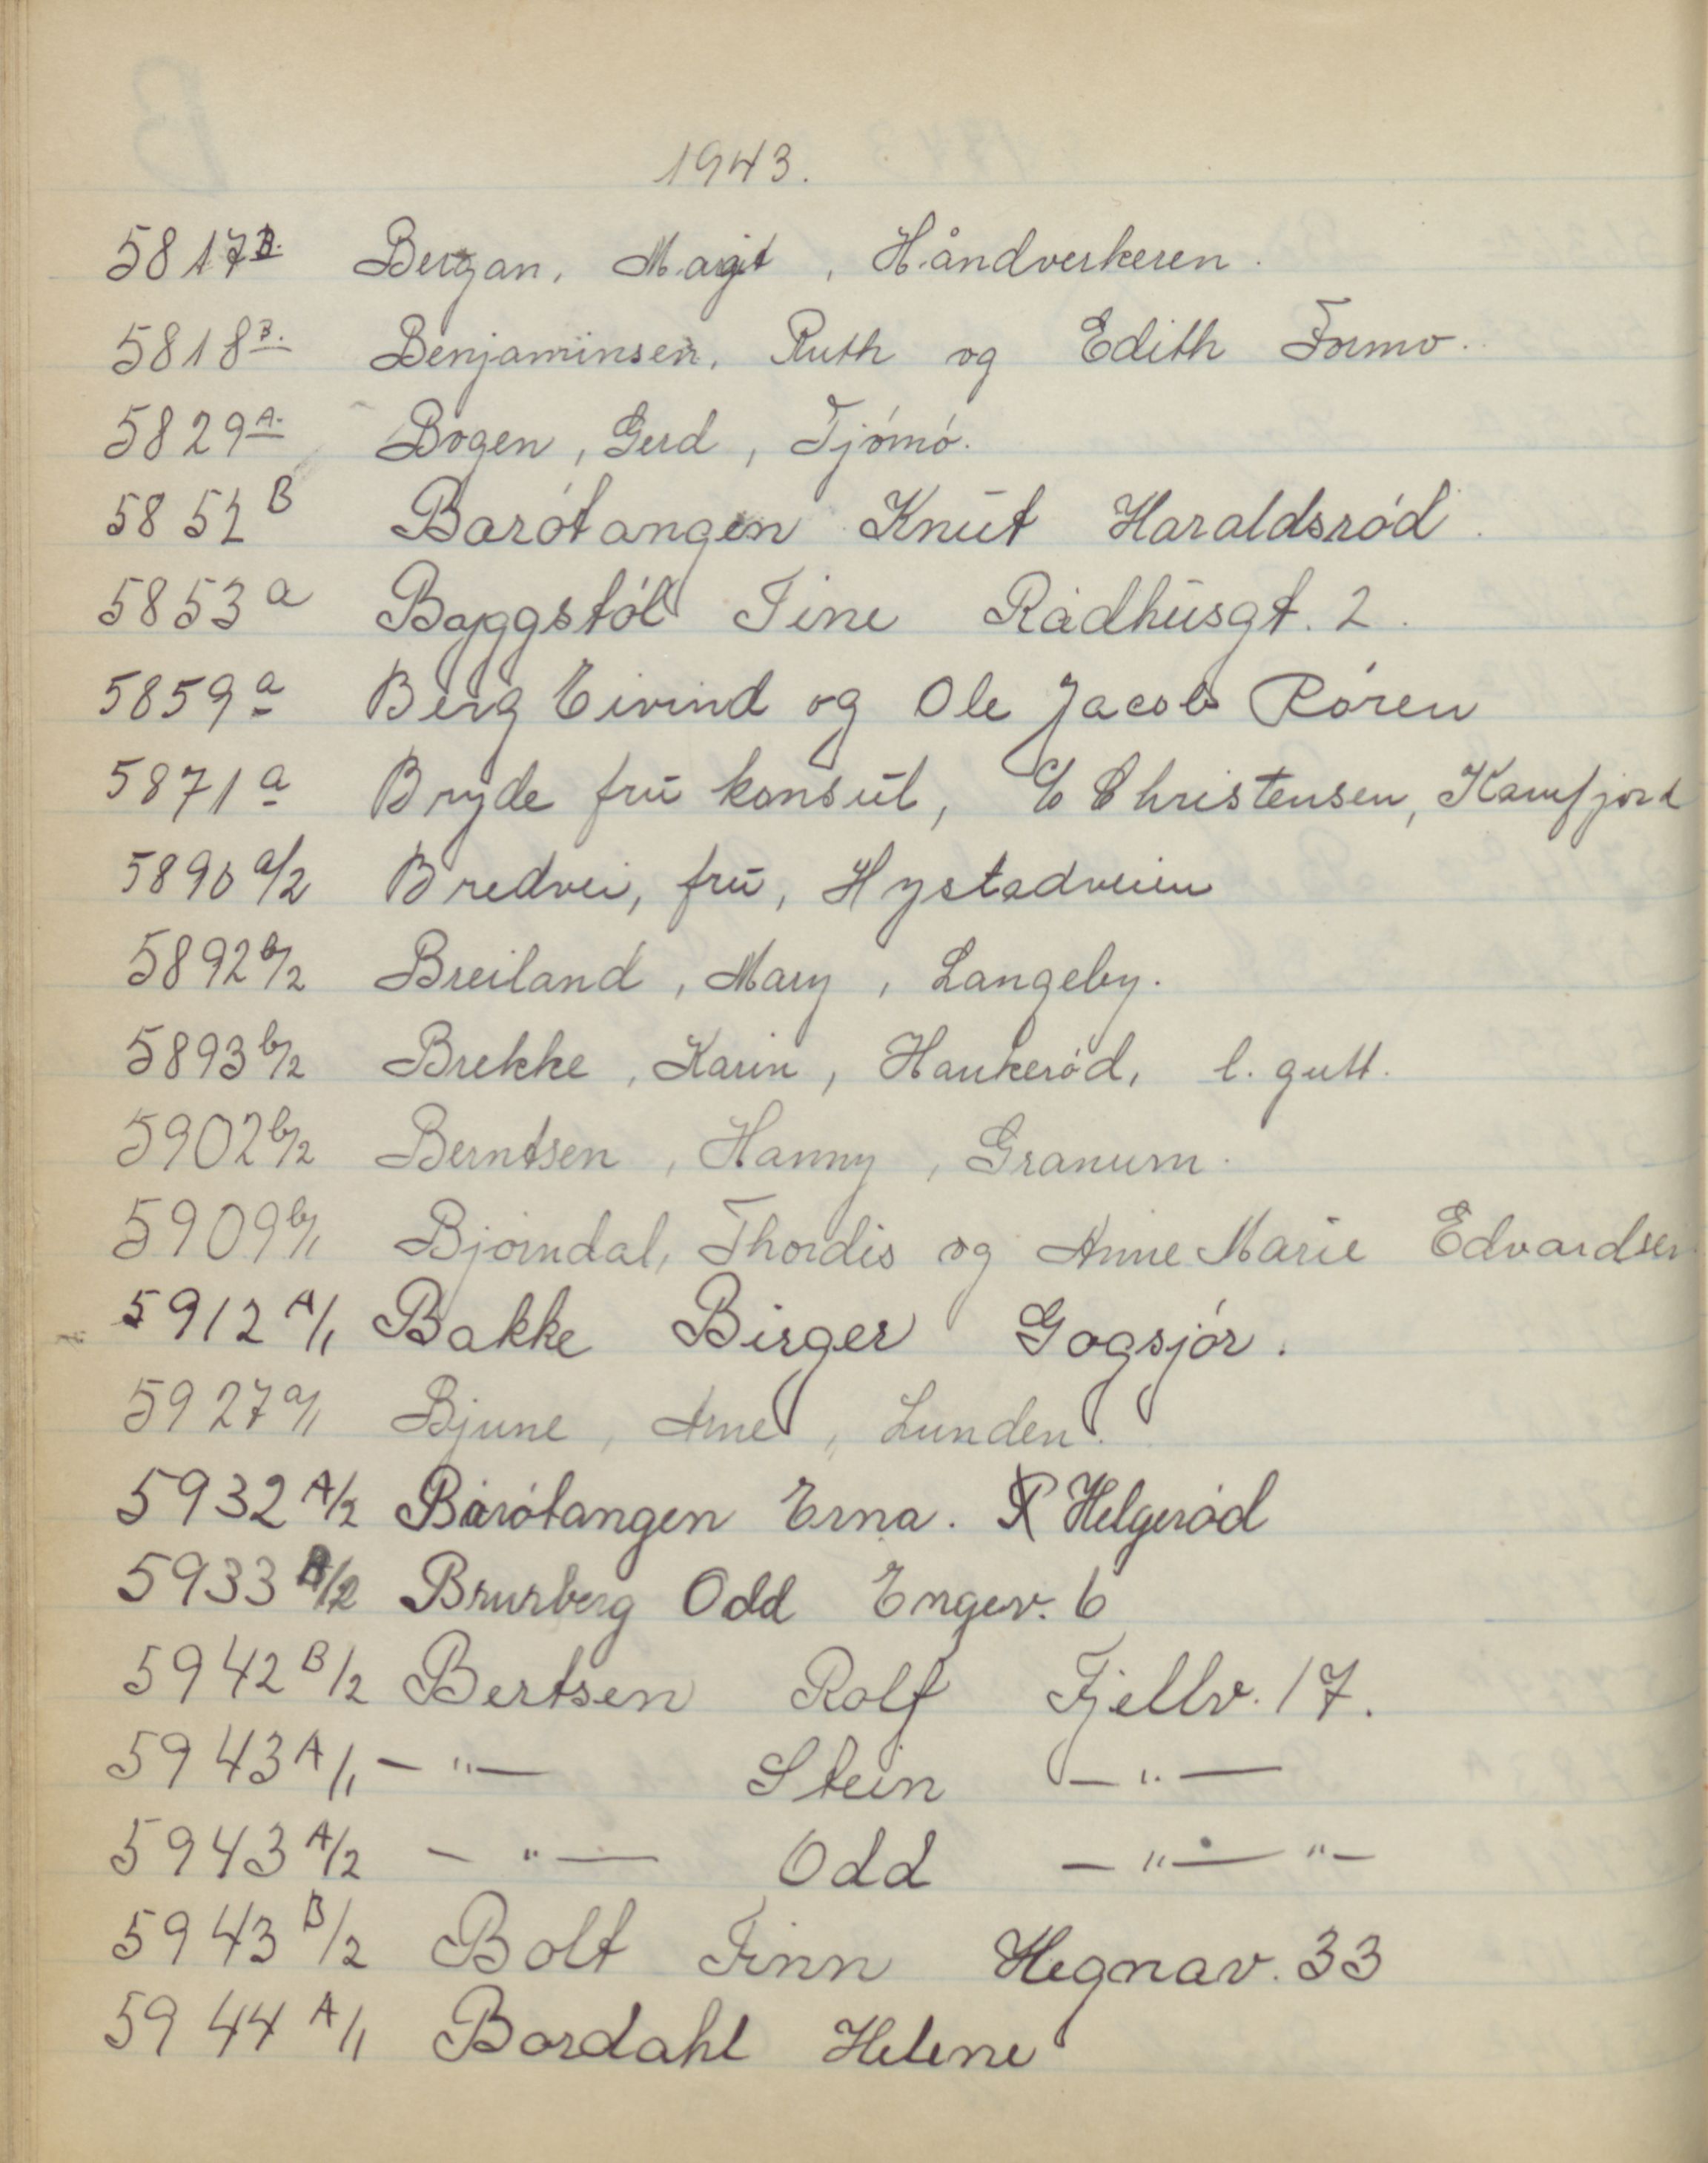 1943.
5817B. Bergan, Margit, Håndverkeren.
5818B. Benjaminsen, Ruth og Edith Formo.
5829A. Bogen, Gerd, Tjómó.
5852B Barótangen Knut Haraldsród.
5853a Byggstól Tine Rådhusgt. 2.
5859a Berg Eivind og Ole Jacob Róren
5871a Bryde fru konsul, Christensen, Kamfjord
5890a/2 Bredvei, fru, Hystadveien
5892b/2 Breiland, Mary, Langeby.
5893b/2 Brekke, Karin, Haukeród, l. gutt.
5902b/2 Berntsen, Hanny, Granum.
5909b/1 Bjórndal, Thordis og Anne Marie Edvardsen
5912A/1 Bakke Birger Gogsjór.
5927a/1 Bjune, Arne, Lunden.
5932A/2 Barótangen Erna. Helgeród
5933B/2 Brurberg Odd Engev. 6
5942B/2 Bertsen Rolf Fjellv. 17.
5943A/1 — " — Stein — " —
5943A/2 — " — Odd — " — " —
5943B/2 Bolt Finn Hegnav. 33
5944A/1 Bordahl Helene